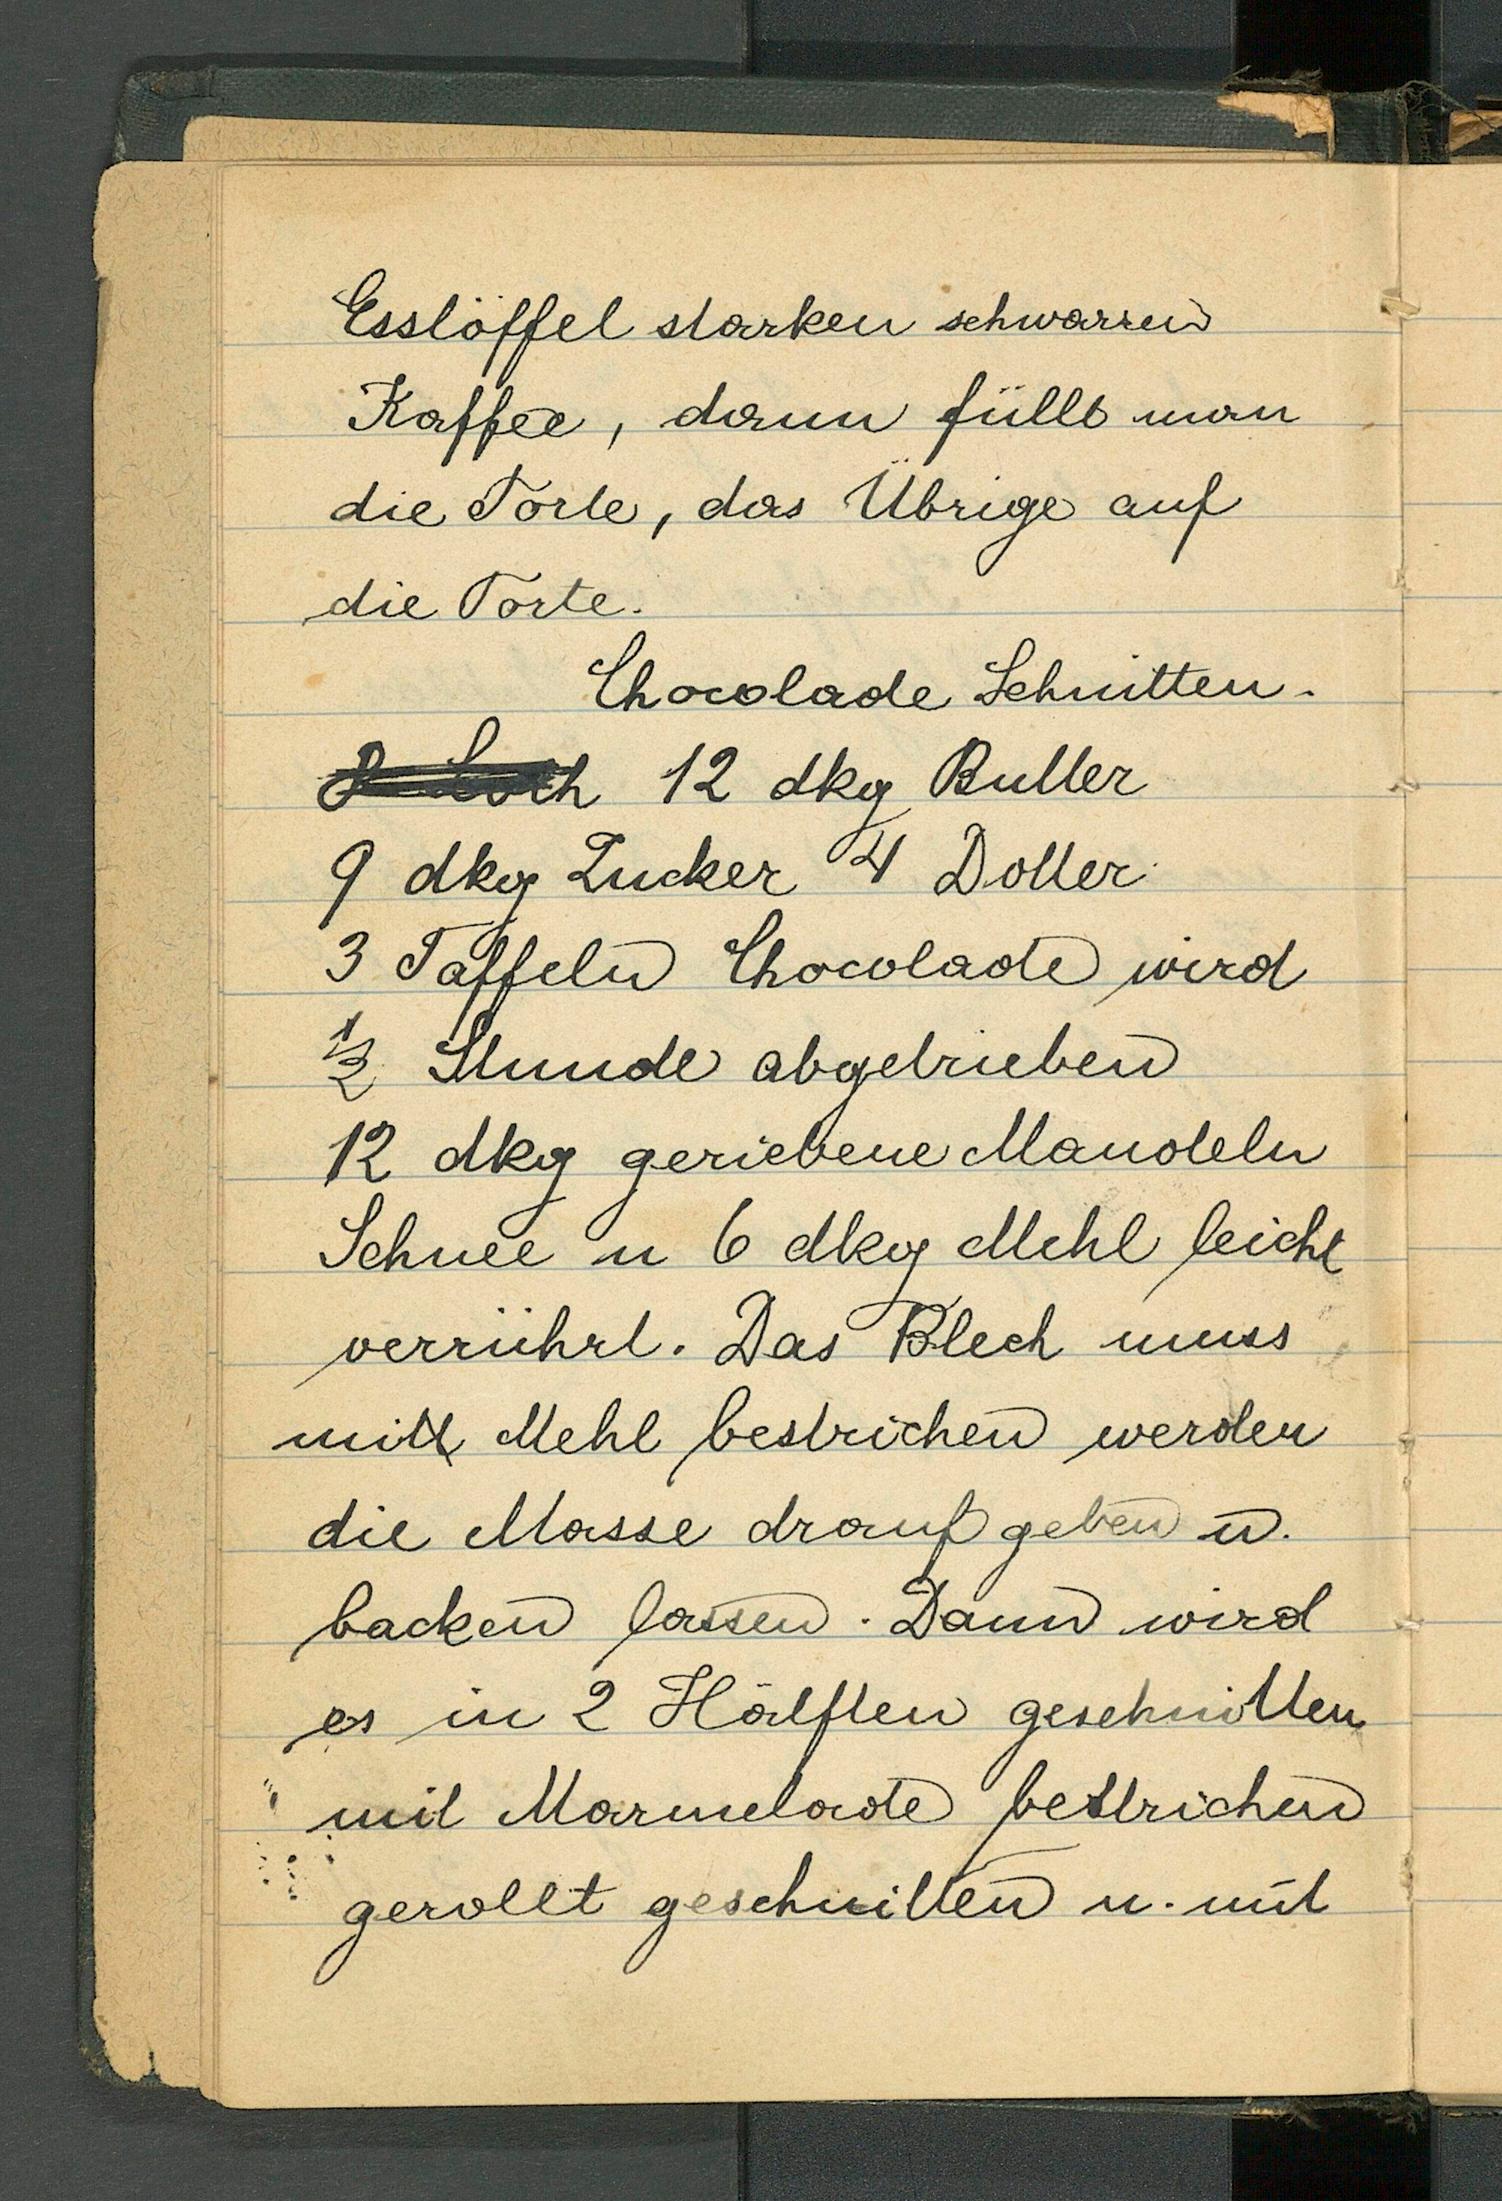 Esslöffel starken schwarzen
Kaffee, dann füllt man
die Torte, das Übrige auf
die Torte.
Chocolade Schnitten.
8 Loth 12 dkg Butter
9 dkg Zucker 4 Dotter
3 Taffeln Chocolade wird
1/2 Stunde abgetrieben
12 dkg geriebene Mandeln
Schnee u 6 dkg Mehl leicht
verrührt. Das Blech muss
mitt Mehl bestrichen werden
die Masse drauf geben u.
backen lassen. Dann wird
es in 2 Hälften geschnitten
mit Marmelade bestrichen
gerollt geschnitten u. mit